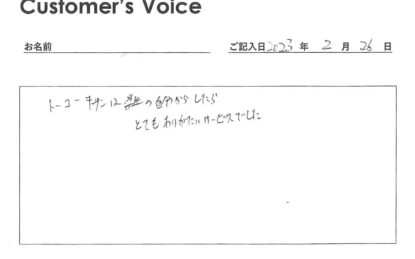 Customer's Voice
お名前
ご記入日2023 年 2 月 26 日
トーコーキッチンは学生の自分からしたら
とてもありがたいサービスでした